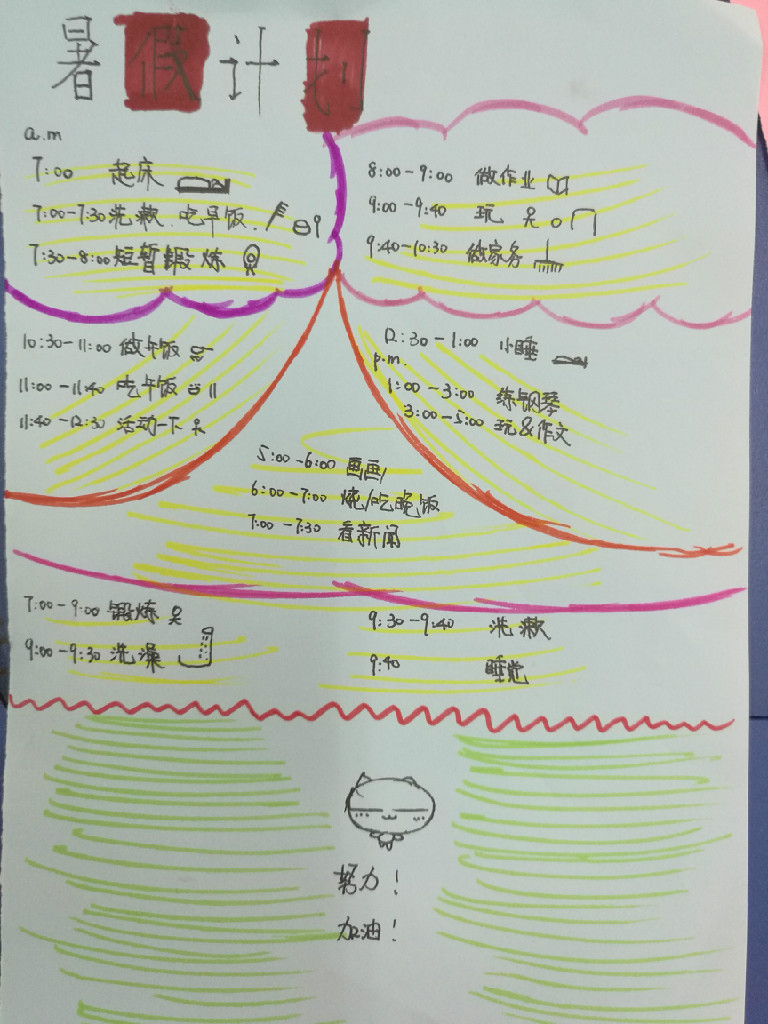 暑假计划
a.m
7:00 起床
7:00-7:30 洗漱、吃早饭、
7:30-8:00 短暂锻炼
8:00-9:00 做作业
9:00-9:40 玩
9:40-10:30 做家务
10:30-11:00 做午饭
11:00-11:40 吃午饭
11:40-12:30 活动一下
12:30-1:00 小睡
p.m.
1:00-3:00 练钢琴
3:00-5:00 玩&作文
5:00-6:00 画画
6:00-7:00 烧/吃晚饭
7:00-7:30 看新闻
7:00-9:00 锻炼
9:00-9:30 洗澡
9:30-9:40 洗漱
9:40 睡觉
努力!
加油!